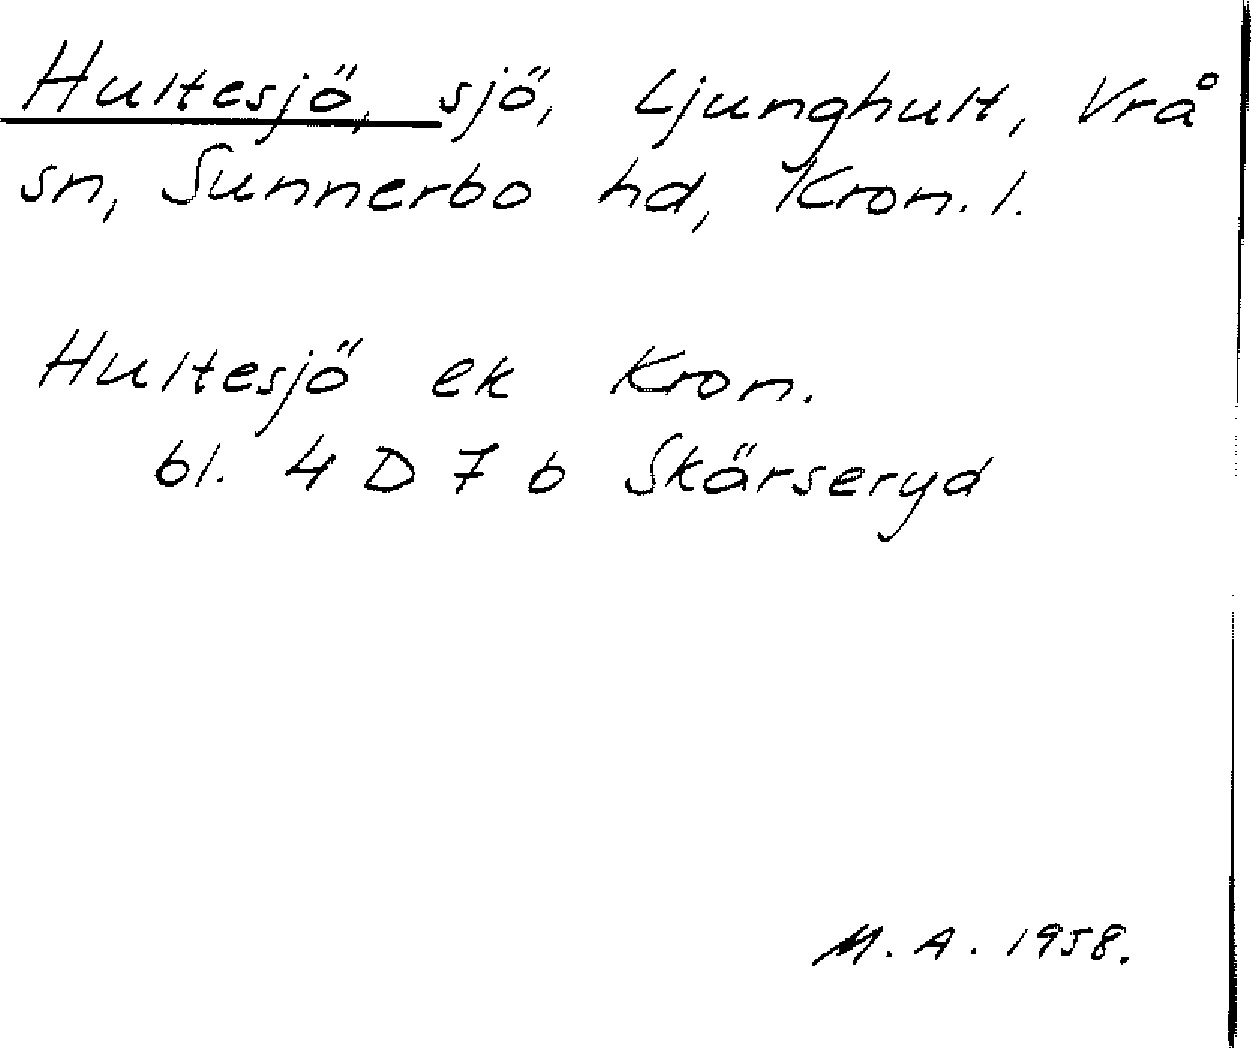 Hultesjö, sjö, Ljunghult, Vrå
sn, Sunnerbo hd, Kron. l.
Hultesjö ek Kron.
bl. 4 D 7 b Skärseryd
M. A. 1958.